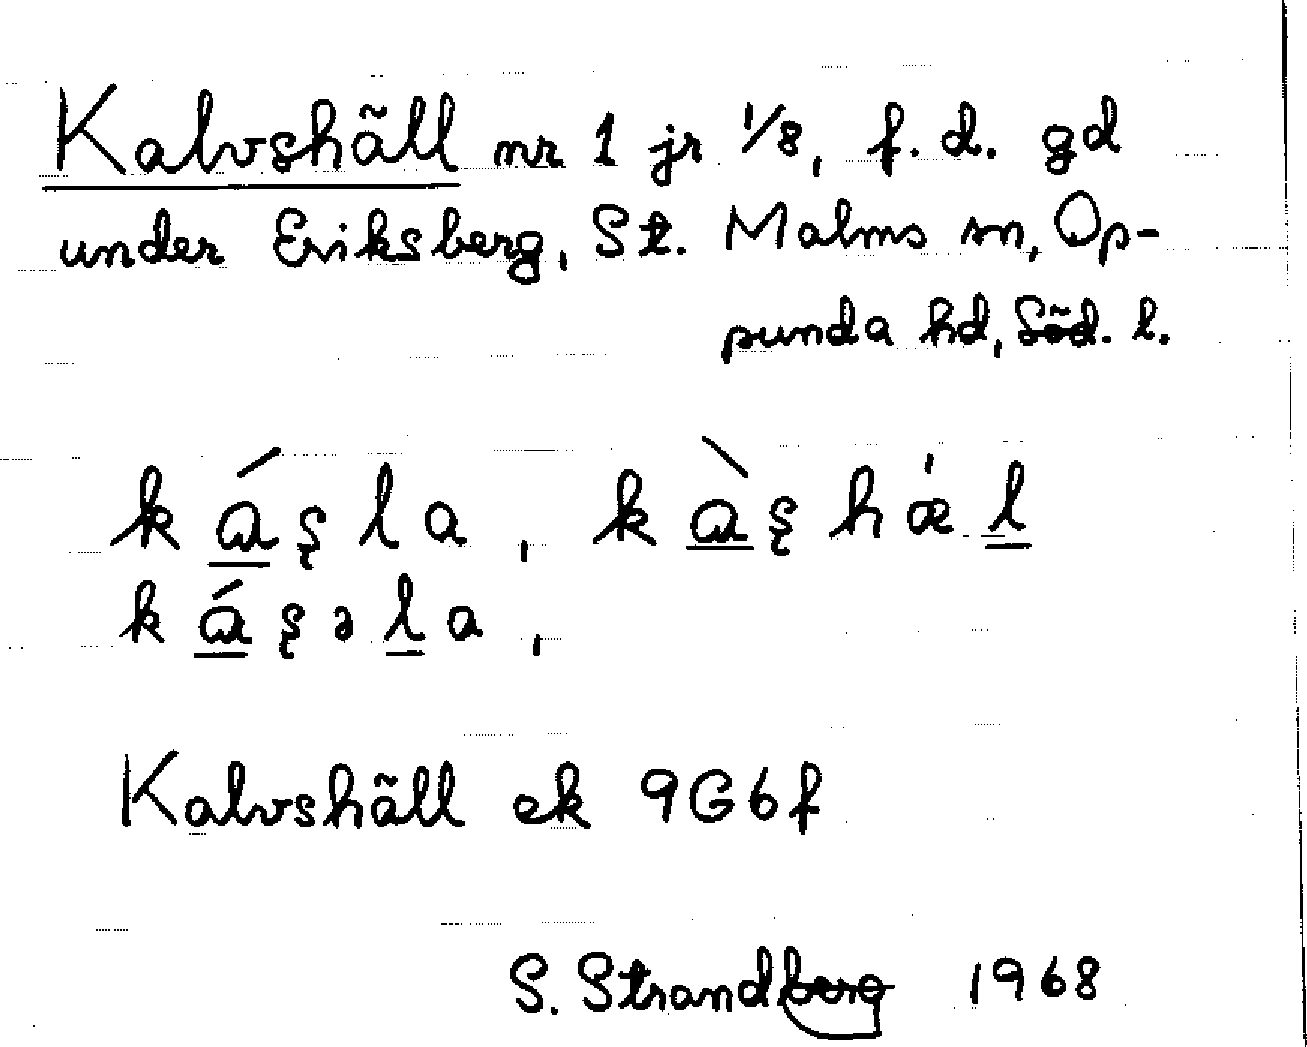 Kalvshäll nr 1 jr 1/8, f. d. gd
under Eriksberg, St. Malms sn, Op-
punda hd, Söd. l.
ká̱şla, kà̱şhæ̍ḻ
ká̱şəḻa,
Kalvshäll ek 9G6f
S. Strandberg 1968